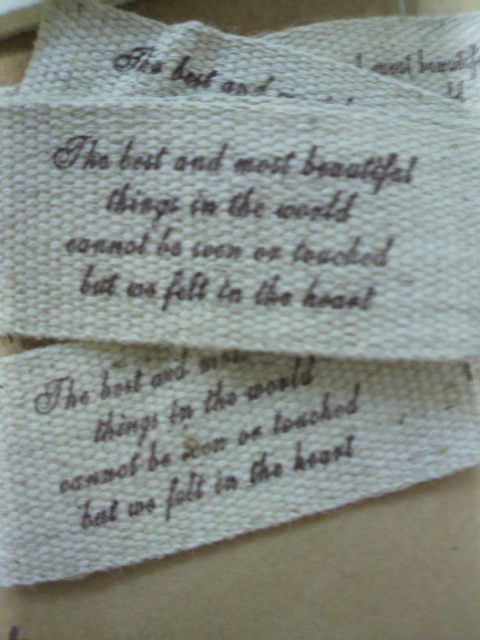 The best and
most beautiful
The best and most beautiful
things in the world
cannot be seen or touched
but we felt in the heart
The best and most
things in the world
cannot be seen or touched
but we felt in the heart